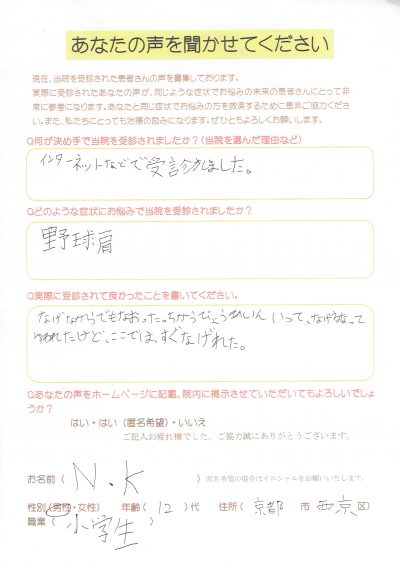 あなたの声を聞かせてください
現在、当院を受診された患者さんの声を募集しております。
実際に受診されたあなたの声が、同じような症状でお悩みの未来の患者さんにとって非
常に参考になります。あなたと同じ症状でお悩みの方を救済するために是非ご協力くださ
い。また、私たちにとっても治療の励みになります。ぜひともよろしくお願いします。
Q何が決め手で当院を受診されましたか?(当院を選んだ理由など)
インターネットなどで受診しました。
Qどのような症状にお悩みで当院を受診されましたか?
野球肩
Q実際に受診されて良かったことを書いてください。
なげながらでもなおった。ちがうびょういんいって、なげるなって
いわれたけど、ここでは、すぐなげれた。
Qあなたの声をホームページに記載、院内に掲示させていただいてもよろしいでしょ
うか?
はい・はい(匿名希望)・いいえ
ご記入お疲れ様でした。ご協力誠にありがとうございます。
お名前( N.K )匿名希望の場合はイニシャルをお願いいたします。
性別(男性・女性) 年齢(12)代 住所(京都 市 西京 区)
職業( 小学生 )